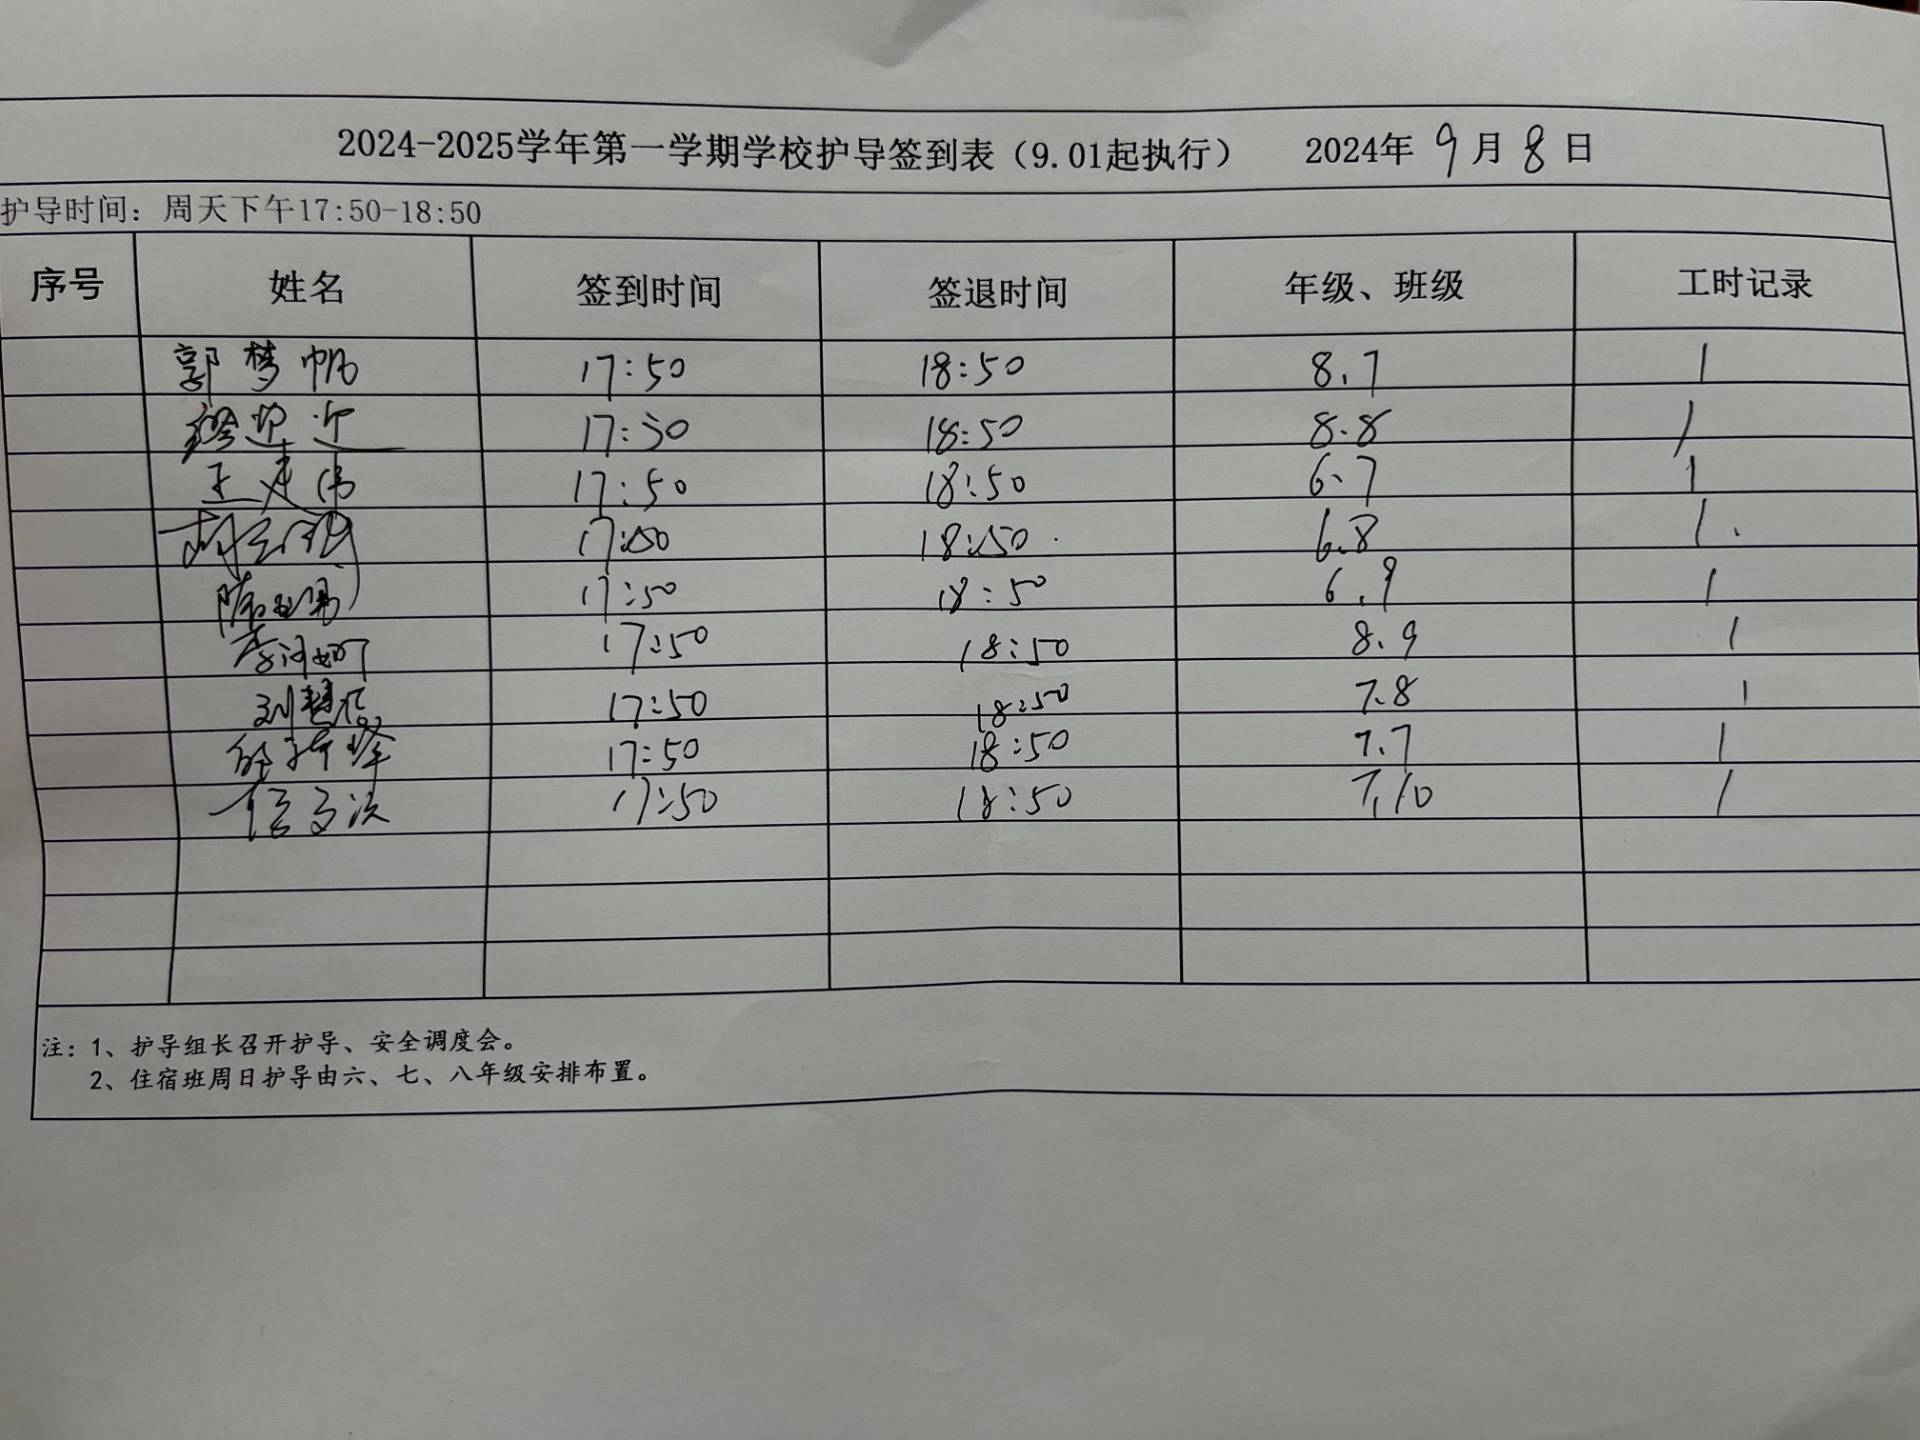 2024-2025学年第一学期学校护导签到表（9.01起执行） 2024年 9月 8日
护导时间：周天下午17:50-18:50
序号 姓名 签到时间 签退时间 年级、班级 工时记录
郭梦帆 17:50 18:50 8.7 1
迎迎 17:50 18:50 8.8 1
王建伟 17:50 18:50 6.7 1
17:50 18:50 6.8 1
陈 17:50 18:50 6.9 1
李 17:50 18:50 8.9 1
刘慧 17:50 18:50 7.8 1
17:50 18:50 7.7 1
17:50 18:50 7.10 1
注：1、护导组长召开护导、安全调度会。
2、住宿班周日护导由六、七、八年级安排布置。